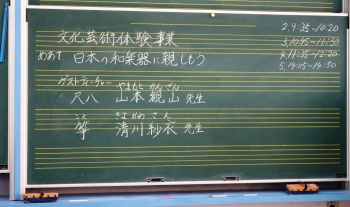 文化芸術体験事業
めあて 日本の和楽器に親しもう
ゲストティーチャー
やまもと かんざん
尺八 山本 観山 先生
こと きよかわ さえ
箏 清川 紗衣 先生
2.9:35~10:20
3.10:45~11:30
4.11:35~12:20
5.14:05~14:50